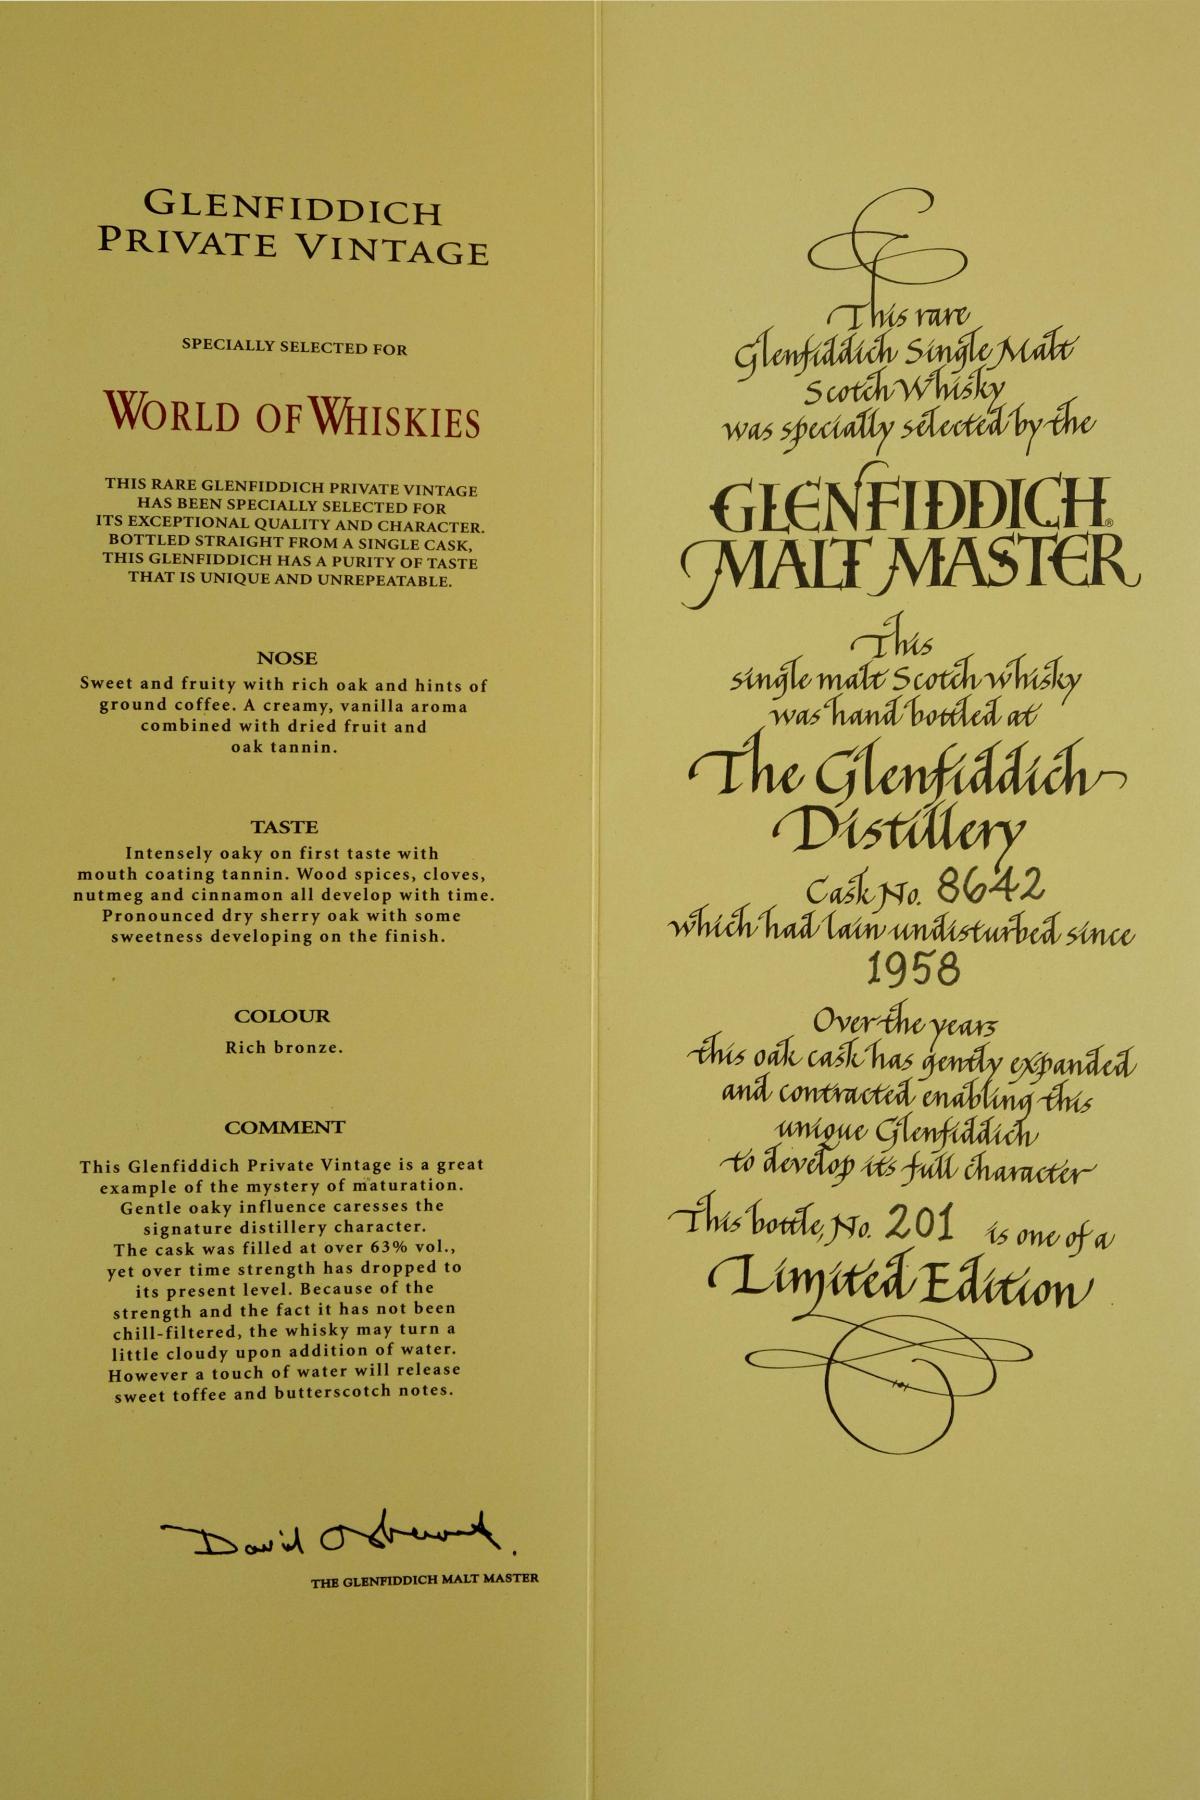 GLENFIDDICH
PRIVATE VINTAGE
SPECIALLY SELECTED FOR
WORLD OF WHISKIES
THIS RARE GLENFIDDICH PRIVATE VINTAGE
HAS BEEN SPECIALLY SELECTED FOR
ITS EXCEPTIONAL QUALITY AND CHARACTER.
BOTTLED STRAIGHT FROM A SINGLE CASK,
THIS GLENFIDDICH HAS A PURITY OF TASTE
THAT IS UNIQUE AND UNREPEATABLE.
NOSE
Sweet and fruity with rich oak and hints of
ground coffee. A creamy, vanilla aroma
combined with dried fruit and
oak tannin.
TASTE
Intensely oaky on first taste with
mouth coating tannin. Wood spices, cloves,
nutmeg and cinnamon all develop with time.
Pronounced dry sherry oak with some
sweetness developing on the finish.
COLOUR
Rich bronze.
COMMENT
This Glenfiddich Private Vintage is a great
example of the mystery of maturation.
Gentle oaky influence caresses the
signature distillery character.
The cask was filled at over 63% vol.,
yet over time strength has dropped to
its present level. Because of the
strength and the fact it has not been
chill-filtered, the whisky may turn a
little cloudy upon addition of water.
However a touch of water will release
sweet toffee and butterscotch notes.
David
THE GLENFIDDICH MALT MASTER
This rare
Glenfiddich Single Malt
Scotch Whisky
was specially selected by the
GLENFIDDICH®
MALT MASTER
This
single malt Scotch whisky
was hand bottled at
The Glenfiddich
Distillery
Cask No. 8642
which had lain undisturbed since
1958
Over the years
this oak cask has gently expanded
and contracted enabling this
unique Glenfiddich
to develop its full character
This bottle, No. 201 is one of a
Limited Edition